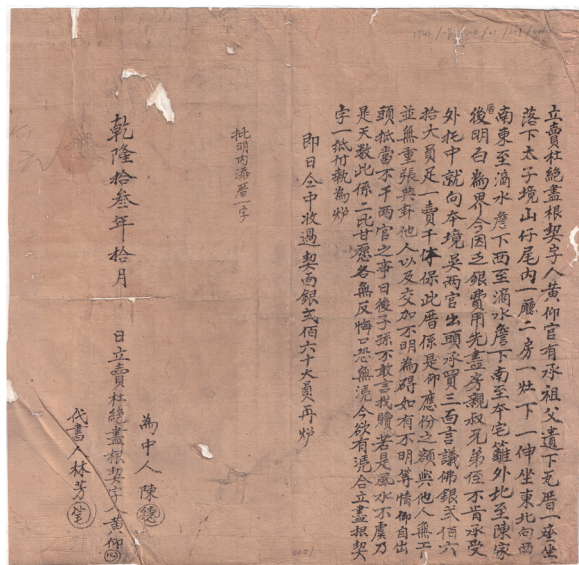 立賣杜絕盡根契字人黃仰官有承祖父遺下瓦厝一座坐
落下太子境山仔尾內一廳二房一灶下一伸坐東北向西
南東至滴水簷下西至滴水簷下南至本宅籬外北至陳家
厝
後明白為界今因乏銀費用先盡房親叔兄弟侄不肯承受
外托中就向本境吳两官出頭承買三面言議佛銀弍佰六
拾大員足一賣千休保此厝係是仰應份之額與他人無干
並無重張典卦他人以及交加不明為碍如有不明等情仰自出
頭抵當不干两官之事日後子孫不敢言找贖若是風水不虞乃
是天數此係二比甘愿各無反悔口恐無憑今欲有混合立盡根契
字一紙付執為炉
即日仝中收過契面銀弍佰六十大員再炉
批明內添厝一字
乾隆拾叁年拾月
日立賣杜絕盡根契字人黃仰
為中人陳德
代書人林芳筆